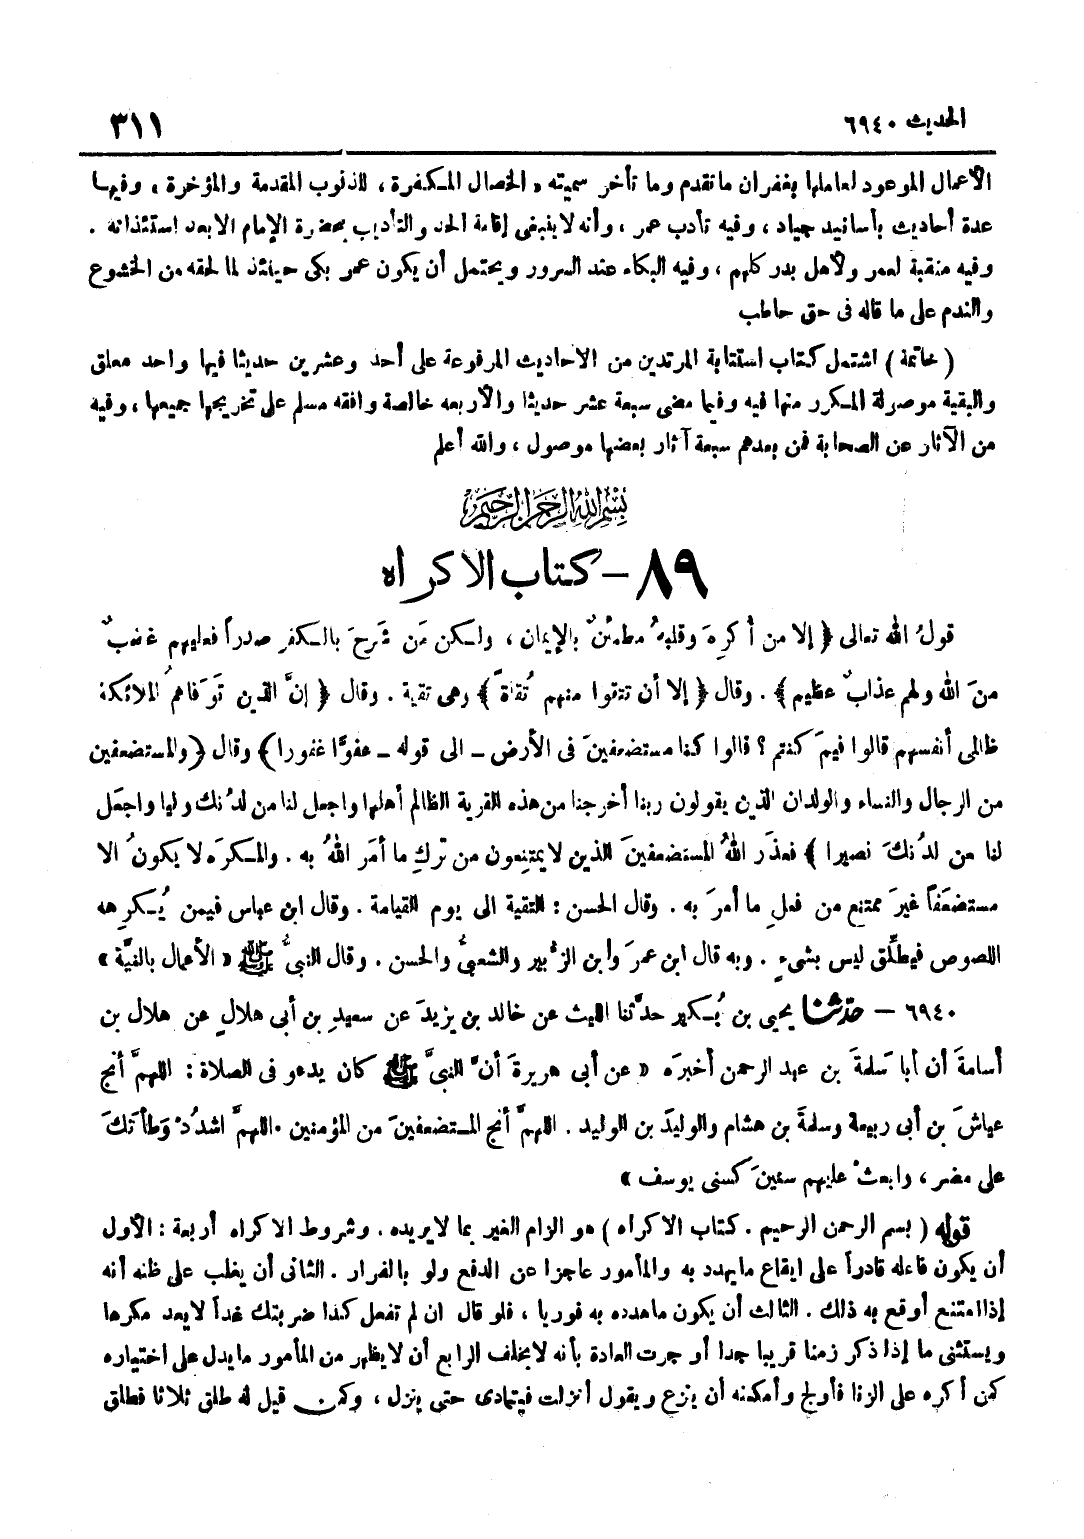 الحديث ٦٩٤٠
٣١١
الأعمال الموعود لعاملها بغفران ماتقدم وما تأخر سميته « الخصال المكفرة ، للذنوب المقدمة والمؤخرة ، وفيها
عدة أحاديث بأسانيد جياد ، وفيه تأدب عمر ، وأنه لاينبغى إقامة الحد والتأديب بحضرة الإمام الا بعد استئذانه .
وفيه منقبة لعمر ولأهل بدر كلهم ، وفيه البكاء عند السرور ويحتمل أن يكون عمر بكى حينئذ لما لحقه من الخشوع
والندم على ما قاله فى حق حاطب
( خاتمة ) اشتمل كتاب استتابة المرتدين من الأحاديث المرفوعة على أحد وعشرين حديثا فيها واحد معلق
والبقية موصولة المكرر منها فيه وفيما مضى سبعة عشر حديثا والأربعه خالصة وافقه مسلم على تخريجها جميعها ، وفيه
من الآثار عن الصحابة فمن بعدهم سبعة آثار بعضها موصول ، والله أعلم
بسم الله الرحمن الرحيم
٨٩ - كتاب الاكراه
قولُ الله تعالى ﴿ إلا من أُكرِهَ وقلبهُ مطمئنٌ بالإيمان ، ولـكن مَن شرحَ بالـكفر صدراً فعليهم غضبٌ
منَ الله ولهم عذابٌ عظيم ﴾ . وقال ﴿ إلا أن تتقوا منهم تُقاةً ﴾ وهى تقية . وقال ﴿ إنَّ الذين تَوَفاهمُ الملائكة
ظالمى أنفسهم قالوا فيمَ كنتم ؟ قالوا كنا مستضعفينَ فى الأرض ـ الى قوله ـ عفوًّا غفورا ﴾ وقال ﴿ والمستضعفين
من الرجال والنساء والولدان الذين يقولون ربنا أخرجنا من هذه القرية الظالم أهلها واجعل لنا من لدُنك وليا واجعَل
لنا من لدُنكَ نصيرا ﴾ فعذَر اللهُ المستضعفينَ الذين لا يمتنِعون من تركِ ما أمَر اللهُ به . والمـكرَه لا يكونُ الا
مستضعَفاً غيرَ ممتنع من فعلِ ما أمرَ به . وقال الحسن : التقية الى يوم القيامة . وقال ابن عباس فيمن يُـكرِهه
اللصوص فيطلِّق ليس بشىءٍ . وبه قال ابن عمرَ وابن الزُّبير والشعبىُّ والحسن . وقال النبىُّ ﷺ « الأعمال بالنيَّة »
٦٩٤٠ - حدّثنا يحيى بن بُـكير حدَّثنا الليث عن خالد بن يزيدَ عن سعيدِ بن أبى هلالٍ عن هلال بن
أسامةَ أن أبا سَلمةَ بن عبد الرحمن أخبرَه « عن أبى هريرةَ أنَّ النبىَّ ﷺ كان يدعو فى الصلاة : اللهمَّ أنجِ
عياشَ بن أبى ربيعة وسلمةَ بن هشام والوليدَ بن الوليد . اللهمَّ أنجِ المـستضعفينَ من المؤمنين . اللهمَّ اشدُدْ وَطأتَكَ
على مضر ، وابعثْ عليهم سنينَ كسنى يوسف »
قوله ( بسم الرحمن الرحيم . كتاب الاكراه ) هو الزام الغير بما لايريده . وشروط الاكراه أربعة : الأول
أن يكون فاعله قادراً على ايقاع مايهدد به والمأمور عاجزا عن الدفع ولو بالفرار . الثانى أن يغلب على ظنه أنه
إذا امتنع أوقع به ذلك . الثالث أن يكون ماهدده به فوريا ، فلو قال ان لم تفعل كذا ضربتك غداً لايعد مكرها
ويستثنى ما إذا ذكر زمنا قريبا جدا أو جرت العادة بأنه لايخلف الرابع أن لايظهر من المأمور مايدل على اختياره
كمن أكره على الزنا فأولج وأمكنه أن ينزع ويقول أنزلت فيتمادى حتى ينزل ، وكمن قيل له طلق ثلاثا فطلق